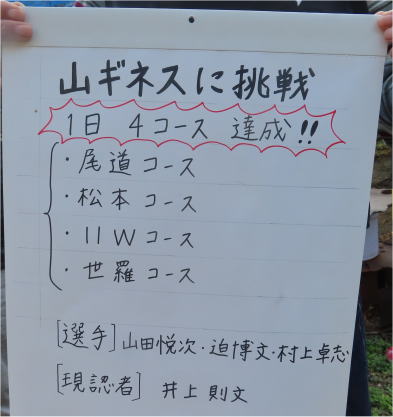 山ギネスに挑戦
1日 4コース 達成!!
・尾道コース
・松本コース
・11Wコース
・世羅コース
[選手]山田悦次・迫博文・村上卓志
[現認者] 井上則文